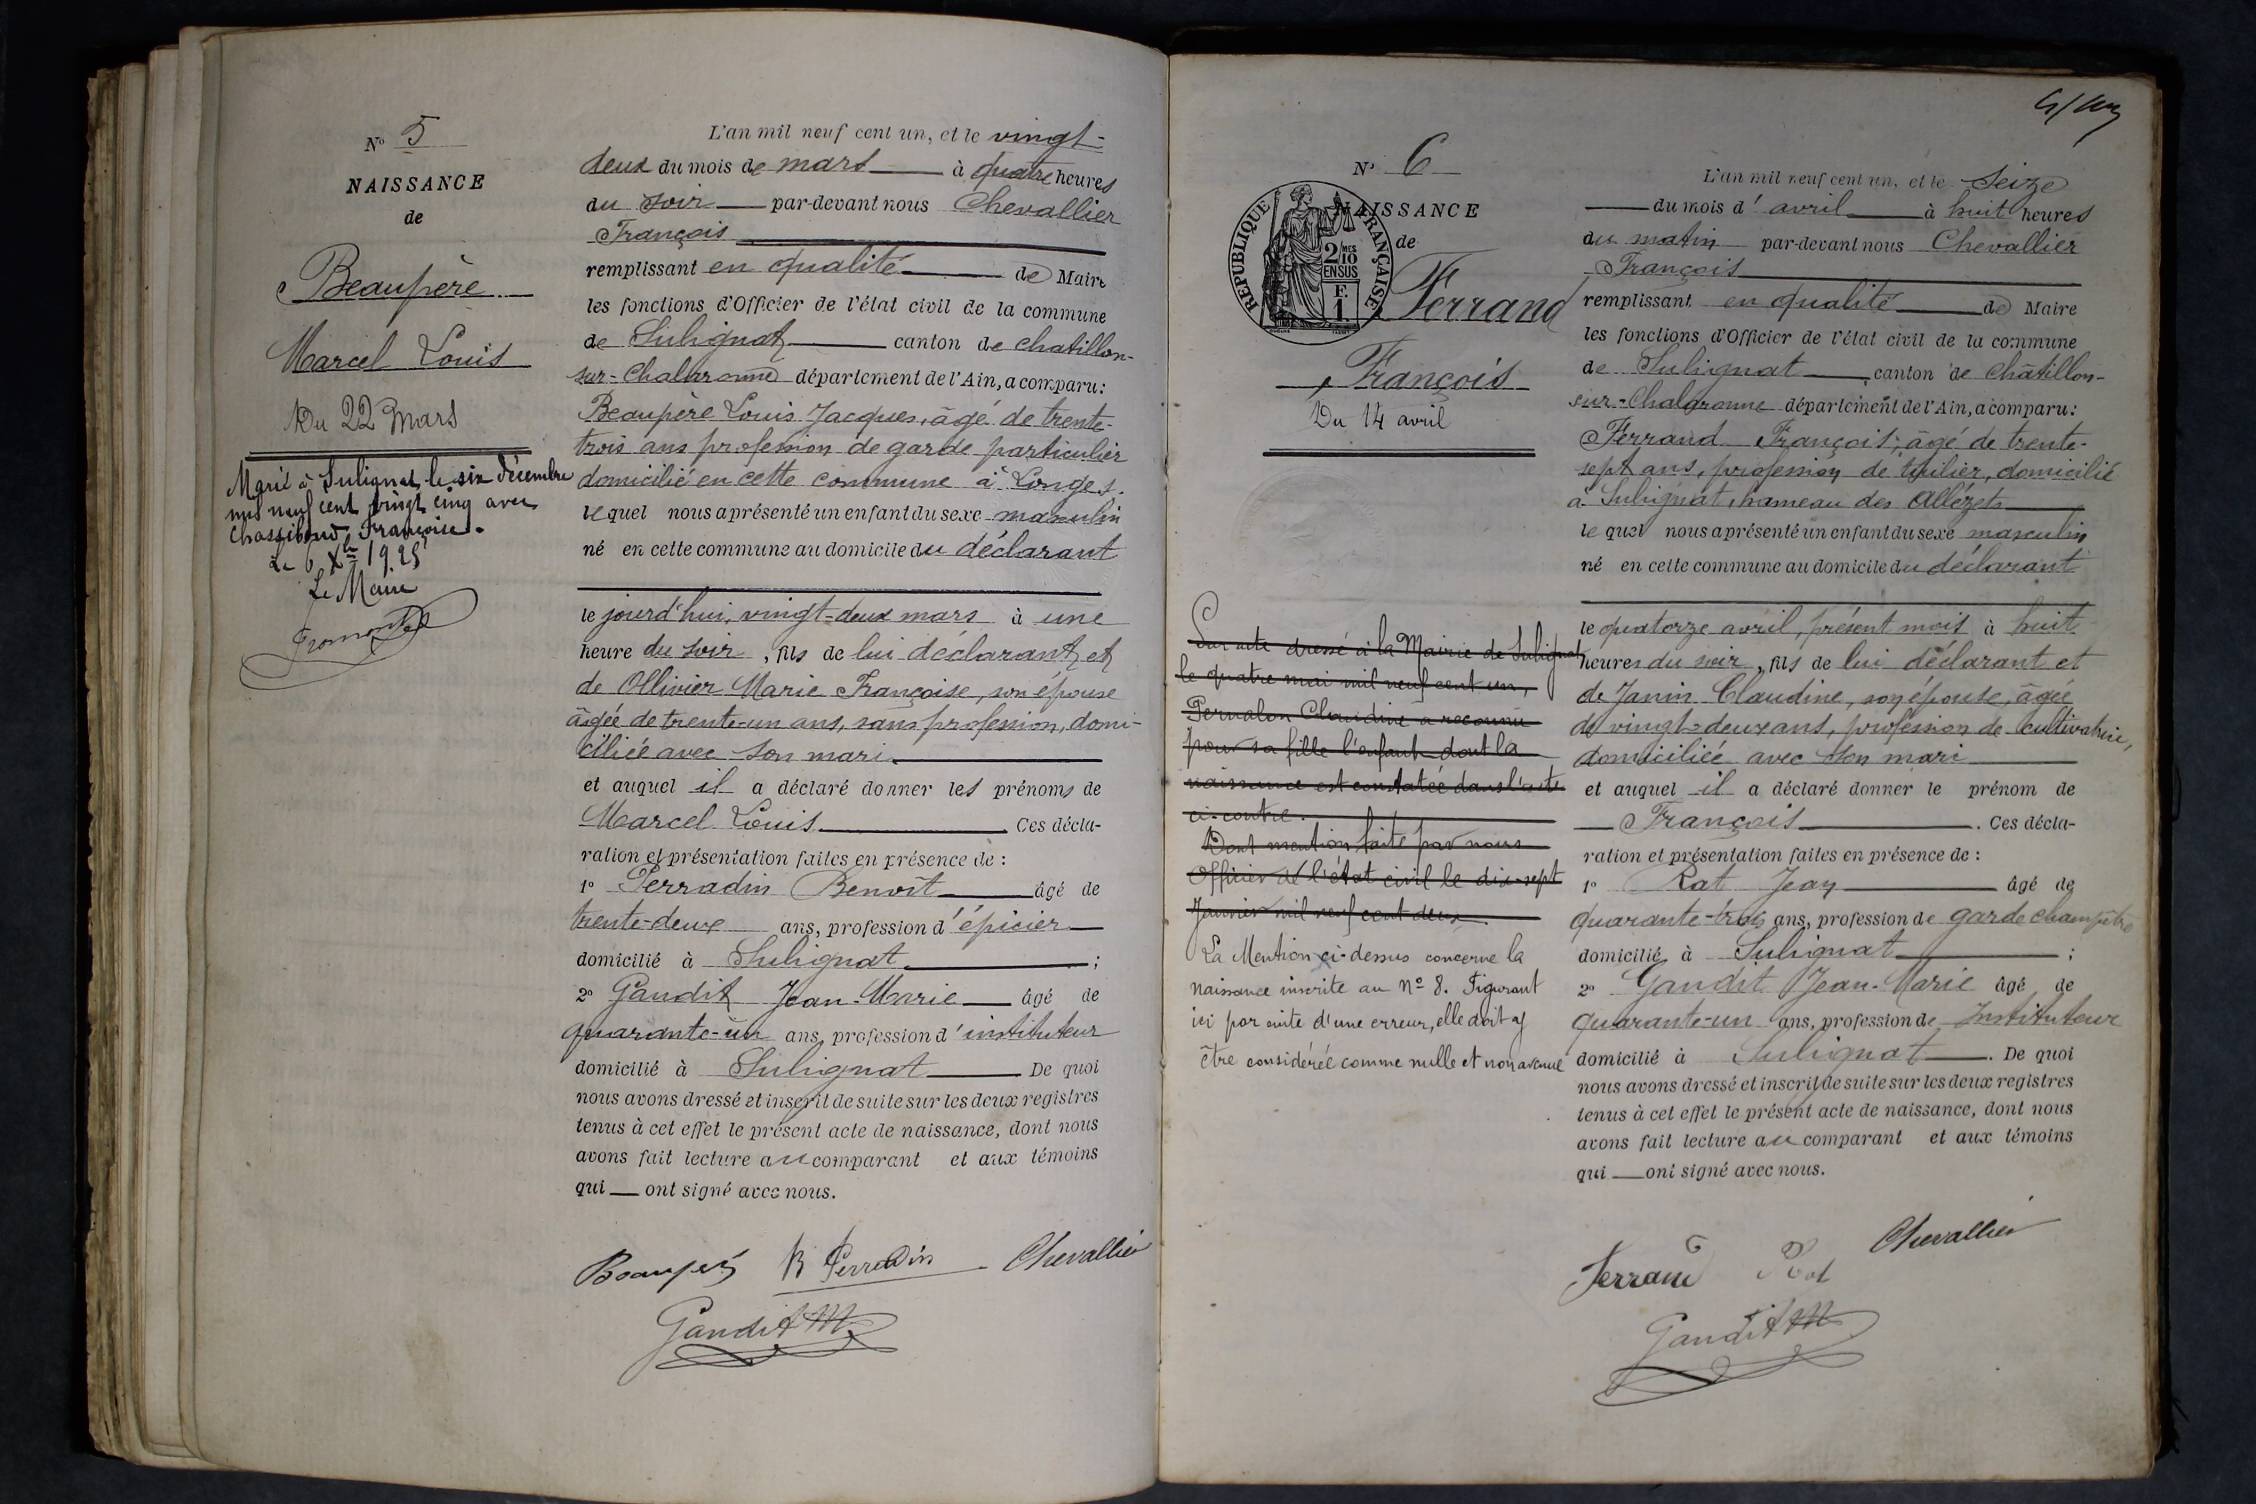 N° 5
NAISSANCE
de
Beaupère
Marcel Louis
Du 22 Mars
Marié à Sulignat le six décembre
mil neuf cent vingt cinq avec
Françoise.
Le 6 Xbre 1925
Le Maire
L'an mil neuf cent un, et le vingt-
deux du mois de mars à quatre heures
du soir par-devant nous Chevallier
François
remplissant en qualité de Maire
les fonctions d'Officier de l'état civil de la commune
de Sulignat canton de chatillon-
sur-Chalaronne département de l'Ain, a comparu:
Beaupère Louis Jacques, âgé de trente-
trois ans profession de garde particulier
domicilié en cette commune à Longes.
lequel nous a présenté un enfant du sexe masculin
né en cette commune au domicile du déclarant
le jourd'hui, vingt-deux mars à une
heure du soir, fils de lui déclarant et
de Ollivier Marie Françoise, son épouse
âgée de trente-un ans, sans profession, domi-
ciliée avec son mari
et auquel il a déclaré donner les prénoms de
Marcel Louis. Ces décla-
ration et présentation faites en présence de :
1° Perradin Benoît âgé de
trente-deux ans, profession d'épicier
domicilié à Sulignat ;
2° Gandit Jean-Marie âgé de
quarante-un ans, profession d'instituteur
domicilié à Sulignat De quoi
nous avons dressé et inscrit de suite sur les deux registres
tenus à cet effet le présent acte de naissance, dont nous
avons fait lecture au comparant et aux témoins
qui ont signé avec nous.
B Perradin Chevallier
Gandit JM
N° 6
RÉPUBLIQUE FRANÇAISE
2/10 MES
EN SUS
F.
1.
NAISSANCE
de
Ferrand
François
Du 14 avril
Par acte dressé à la Mairie de Sulignat
le quatre mai mil neuf cent un,
Claudine a reconnu
pour sa fille l'enfant dont la
naissance est constatée dans l'acte
ci-contre.
Dont mention faite par nous
Officier de l'état civil le dix-sept
Janvier mil neuf cent deux
La Mention ci-dessus concerne la
naissance inscrite au N° 8. Figurant
ici par suite d'une erreur, elle doit
être considérée comme nulle et non avenue
L'an mil neuf cent un, et le seize
du mois d'avril à huit heures
du matin par-devant nous Chevallier
François
remplissant en qualité de Maire
les fonctions d'Officier de l'état civil de la commune
de Sulignat canton de Châtillon-
sur-Chalaronne département de l'Ain, a comparu:
Ferrand François, âgé de trente-
sept ans, profession de tuilier, domicilié
à Sulignat, hameau des Allézets
lequel nous a présenté un enfant du sexe masculin
né en cette commune au domicile du déclarant
le quatorze avril, présent mois à huit
heures du soir, fils de lui déclarant et
de Janin Claudine, son épouse, âgée
de vingt-deux ans, profession de cultivatrice,
domiciliée avec son mari
et auquel il a déclaré donner le prénom de
François. Ces décla-
ration et présentation faites en présence de :
1° Rat Jean âgé de
quarante-trois ans, profession de garde champêtre
domicilié à Sulignat ;
2° Gandit Jean-Marie âgé de
quarante-un ans, profession de Instituteur
domicilié à Sulignat. De quoi
nous avons dressé et inscrit de suite sur les deux registres
tenus à cet effet le présent acte de naissance, dont nous
avons fait lecture au comparant et aux témoins
qui ont signé avec nous.
Ferrand Rat Chevallier
Gandit JM